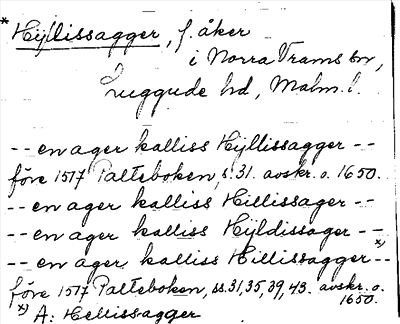 * Hyllissagger, f. åker
i Norra Vrams sn,
Luggude hd, Malm. l.
-- en ager kalliss Hyllissagger --
före 1517 Palteboken, s. 31. avskr. o. 1650.
-- en ager kalliss Hillissager --
-- en ager kalliss Hyldissager --
-- en ager kalliss Hillissagger *) --
före 1517 Palteboken, ss. 31, 35, 39, 43. avskr. o. 1650.
*) A: Hellissagger